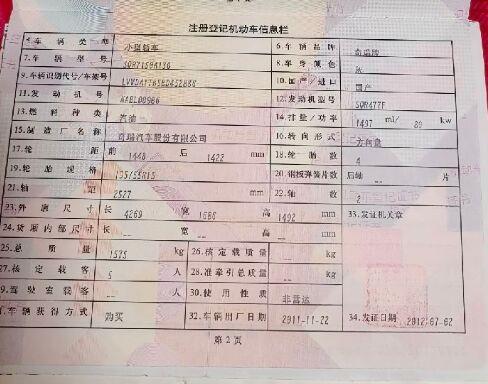 注册登记机动车信息栏
5.车辆类型 小型轿车 6.车辆品牌 奇瑞牌
7.车辆型号 8.车身颜色 灰
9.车辆识别代号/车架号 10.国产/进口 国产
11.发动机号 12.发动机型号 SQR477F
13.燃料种类 汽油 14.排量/功率 1497 ml/ 80 kw
15.制造厂名称 奇瑞汽车股份有限公司 16.转向形式 方向盘
17.轮距 前 1440 后 1422 mm 18.轮胎数 4
19.轮胎规格 20.钢板弹簧片数 后轴 -- 片
21.轴距 2527 mm 22.轴数 2
23.外廓尺寸 长 4269 宽 1686 高 1492 mm 33.发证机关章
24.货厢内部尺寸 长 -- 宽 -- 高 -- mm
25.总质量 1575 kg 26.核定载质量 -- kg
27.核定载客 5 人 28.准牵引总质量 -- kg
9.驾驶室载客 -- 人 30.使用性质 非营运
车辆获得方式 购买 32.车辆出厂日期 2011-11-22 34.发证日期 2012-07-02
第2页